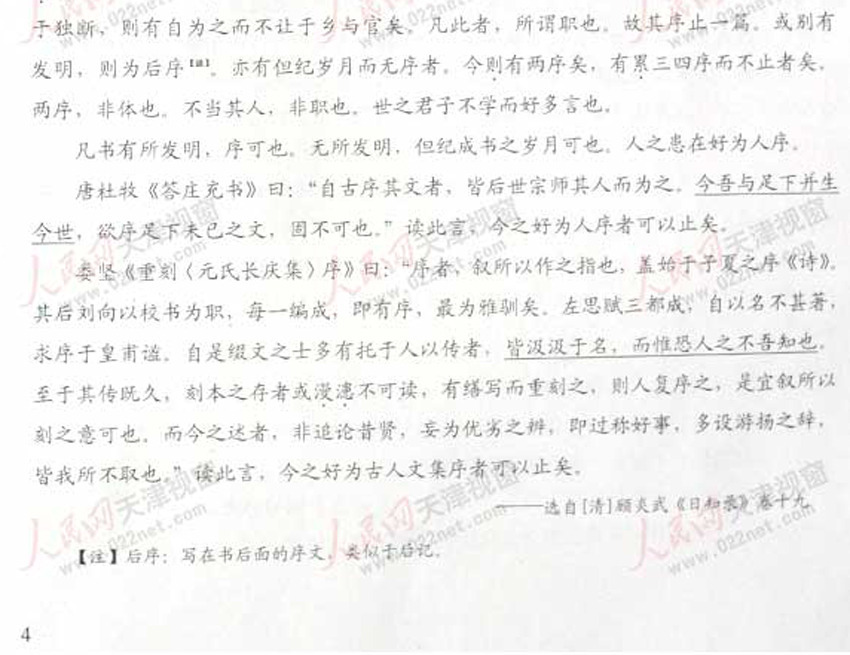 于独断，则有自为之而不让于乡与官矣。凡此者，所谓职也。故其序止一篇。或别有
发明，则为后序【注】。亦有但纪岁月而无序者。今则有两序矣，有累三四序而不止者矣。
两序，非体也。不当其人，非职也。世之君子不学而好多言也。
凡书有所发明，序可也。无所发明，但纪成书之岁月可也。人之患在好为人序。
唐杜牧《答庄充书》曰：“自古序其文者，皆后世宗师其人而为之。今吾与足下并生
今世，欲序足下未已之文，固不可也。”读此言，今之好为人序者可以止矣。
娄坚《重刻〈元氏长庆集〉序》曰：“序者，叙所以作之指也，盖始于子夏之序《诗》。
其后刘向以校书为职，每一编成，即有序，最为雅驯矣。左思赋三都成，自以名不甚著，
求序于皇甫谧。自是缀文之士多有托于人以传者，皆汲汲于名，而惟恐人之不吾知也。
至于其传既久，刻本之存者或漫漶不可读，有缮写而重刻之，则人复序之，是宜叙所以
刻之意可也。而今之述者，非追论昔贤，妄为优劣之辨，即过称好事，多设游扬之辞，
皆我所不取也。”读此言，今之好为古人文集序者可以止矣。
——选自[清]顾炎武《日知录》卷十九
【注】后序：写在书后面的序文，类似于后记。
4
人民网 天津视窗
www.022net.com
人民网 天津视窗
www.022net.com
人民网 天津视窗
www.022net.com
人民网 天津视窗
www.022net.com
人民网 天津视窗
www.022net.com
人民网 天津视窗
www.022net.com